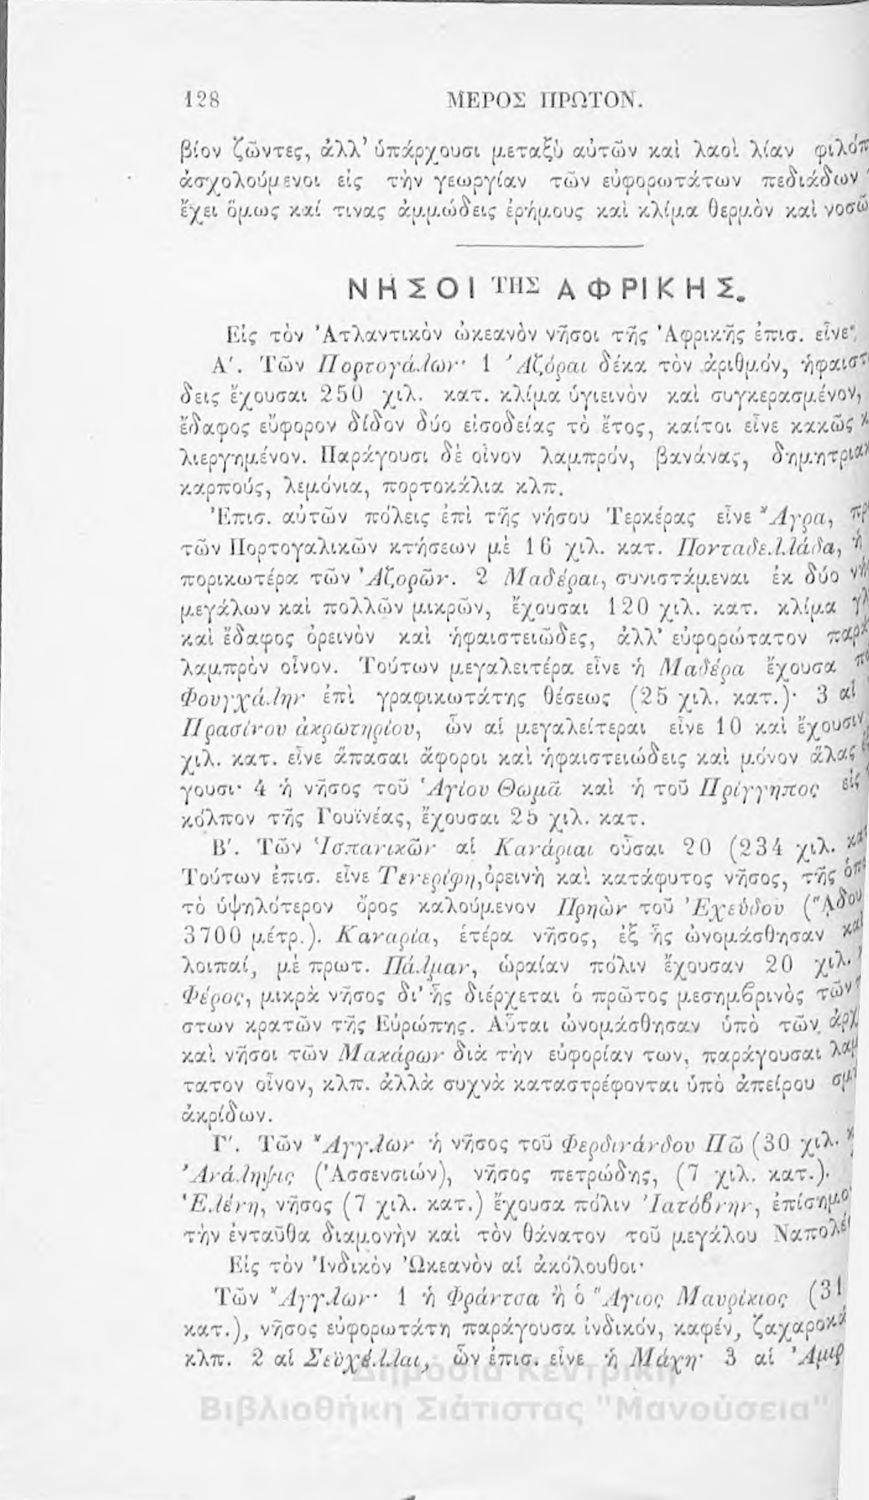 128 ΜΕΡΟΣ ΠΡΩΤΟΝ.
βίον ζῶντες, ἀλλ’ ὑπάρχουσι μεταξὺ αὐτῶν καὶ λαοὶ λίαν φιλόπ
ἀσχολούμενοι εἰς τὴν γεωργίαν τῶν εὐφορωτάτων πεδιάδων
ἔχει ὅμως καί τινας ἀμμώδεις ἐρήμους καὶ κλίμα θερμὸν καὶ νοσῶ
ΝΗΣΟΙ ΤΗΣ ΑΦΡΙΚΗΣ.
Εἰς τὸν Ἀτλαντικὸν ὠκεανὸν νῆσοι τῆς Ἀφρικῆς ἐπισ. εἶνε·
Α′. Τῶν Πορτογάλων· 1 Ἀζόραι δέκα τὸν ἀριθμόν, ἡφαιστ
δεις ἔχουσαι 250 χιλ. κατ. κλίμα ὑγιεινὸν καὶ συγκερασμένον,
ἔδαφος εὔφορον δίδον δύο εἰσοδείας τὸ ἔτος, καίτοι εἶνε κακῶς κ
λιεργημένον. Παράγουσι δὲ οἶνον λαμπρόν, βανάνας, δημητριακ
καρπούς, λεμόνια, πορτοκάλια κλπ.
Ἐπισ. αὐτῶν πόλεις ἐπὶ τῆς νήσου Τερκέρας εἶνε Ἄγρα, πρ
τῶν Πορτογαλικῶν κτήσεων μὲ 16 χιλ. κατ. Πονταδελλάδα, ἡ
πορικωτέρα τῶν Ἀζορῶν. 2 Μαδέραι, συνιστάμεναι ἐκ δύο νή
μεγάλων καὶ πολλῶν μικρῶν, ἔχουσαι 120 χιλ. κατ. κλίμα γλ
καὶ ἔδαφος ὀρεινὸν καὶ ἡφαιστειῶδες, ἀλλ’ εὐφορώτατον παρα
λαμπρὸν οἶνον. Τούτων μεγαλειτέρα εἶνε ἡ Μαδέρα ἔχουσα π
Φουγχάλην ἐπὶ γραφικωτάτης θέσεως (25 χιλ. κατ.)· 3 αἱ
Πρασίνου ἀκρωτηρίου, ὧν αἱ μεγαλείτεραι εἶνε 10 καὶ ἔχουσιν
χιλ. κατ. εἶνε ἅπασαι ἄφοροι καὶ ἡφαιστειώδεις καὶ μόνον ἅλας
γουσι· 4 ἡ νῆσος τοῦ Ἁγίου Θωμᾶ καὶ ἡ τοῦ Πρίγγηπος εἰς
κόλπον τῆς Γουϊνέας, ἔχουσαι 25 χιλ. κατ.
Β′. Τῶν Ἱσπανικῶν αἱ Κανάριαι οὖσαι 20 (234 χιλ. κατ
Τούτων ἐπισ. εἶνε Τενερίφη, ὀρεινὴ καὶ κατάφυτος νῆσος, τῆς ὁπ
τὸ ὑψηλότερον ὄρος καλούμενον Πρηὼν τοῦ Ἐχεύδου (Ἄδου
3700 μέτρ.). Καναρία, ἑτέρα νῆσος, ἐξ ἧς ὠνομάσθησαν κα
λοιπαί, μὲ πρωτ. Πάλμαν, ὡραίαν πόλιν ἔχουσαν 20 χιλ.
Φέρος, μικρὰ νῆσος δι’ ἧς διέρχεται ὁ πρῶτος μεσημβρινὸς τῶν
στων κρατῶν τῆς Εὐρώπης. Αὗται ὠνομάσθησαν ὑπὸ τῶν ἀρχ
καὶ νῆσοι τῶν Μακάρων διὰ τὴν εὐφορίαν των, παράγουσαι λαμ
τατον οἶνον, κλπ. ἀλλὰ συχνὰ καταστρέφονται ὑπὸ ἀπείρου σμ
ἀκρίδων.
Γ′. Τῶν Ἄγγλων ἡ νῆσος τοῦ Φερδινάνδου Πῶ (30 χιλ. κ
Ἀνάληψις (Ἀσσενσιών), νῆσος πετρώδης, (7 χιλ. κατ.)·
Ἑλένη, νῆσος (7 χιλ. κατ.) ἔχουσα πόλιν Ἰατόβνην, ἐπίσημο
τὴν ἐνταῦθα διαμονὴν καὶ τὸν θάνατον τοῦ μεγάλου Ναπολέ
Εἰς τὸν Ἰνδικὸν Ὠκεανὸν αἱ ἀκόλουθοι·
Τῶν Ἄγγλων· 1 ἡ Φράντσα ἢ ὁ Ἅγιος Μαυρίκιος (31
κατ.), νῆσος εὐφορωτάτη παράγουσα ἰνδικόν, καφέν, ζαχαροκά
κλπ. 2 αἱ Σευχέλλαι, ὧν ἐπισ. εἶνε ἡ Μάχη· 3 αἱ Ἀμιρ
Δημόσια Κεντρική
Βιβλιοθήκη Σιάτιστας "Μανούσεια"